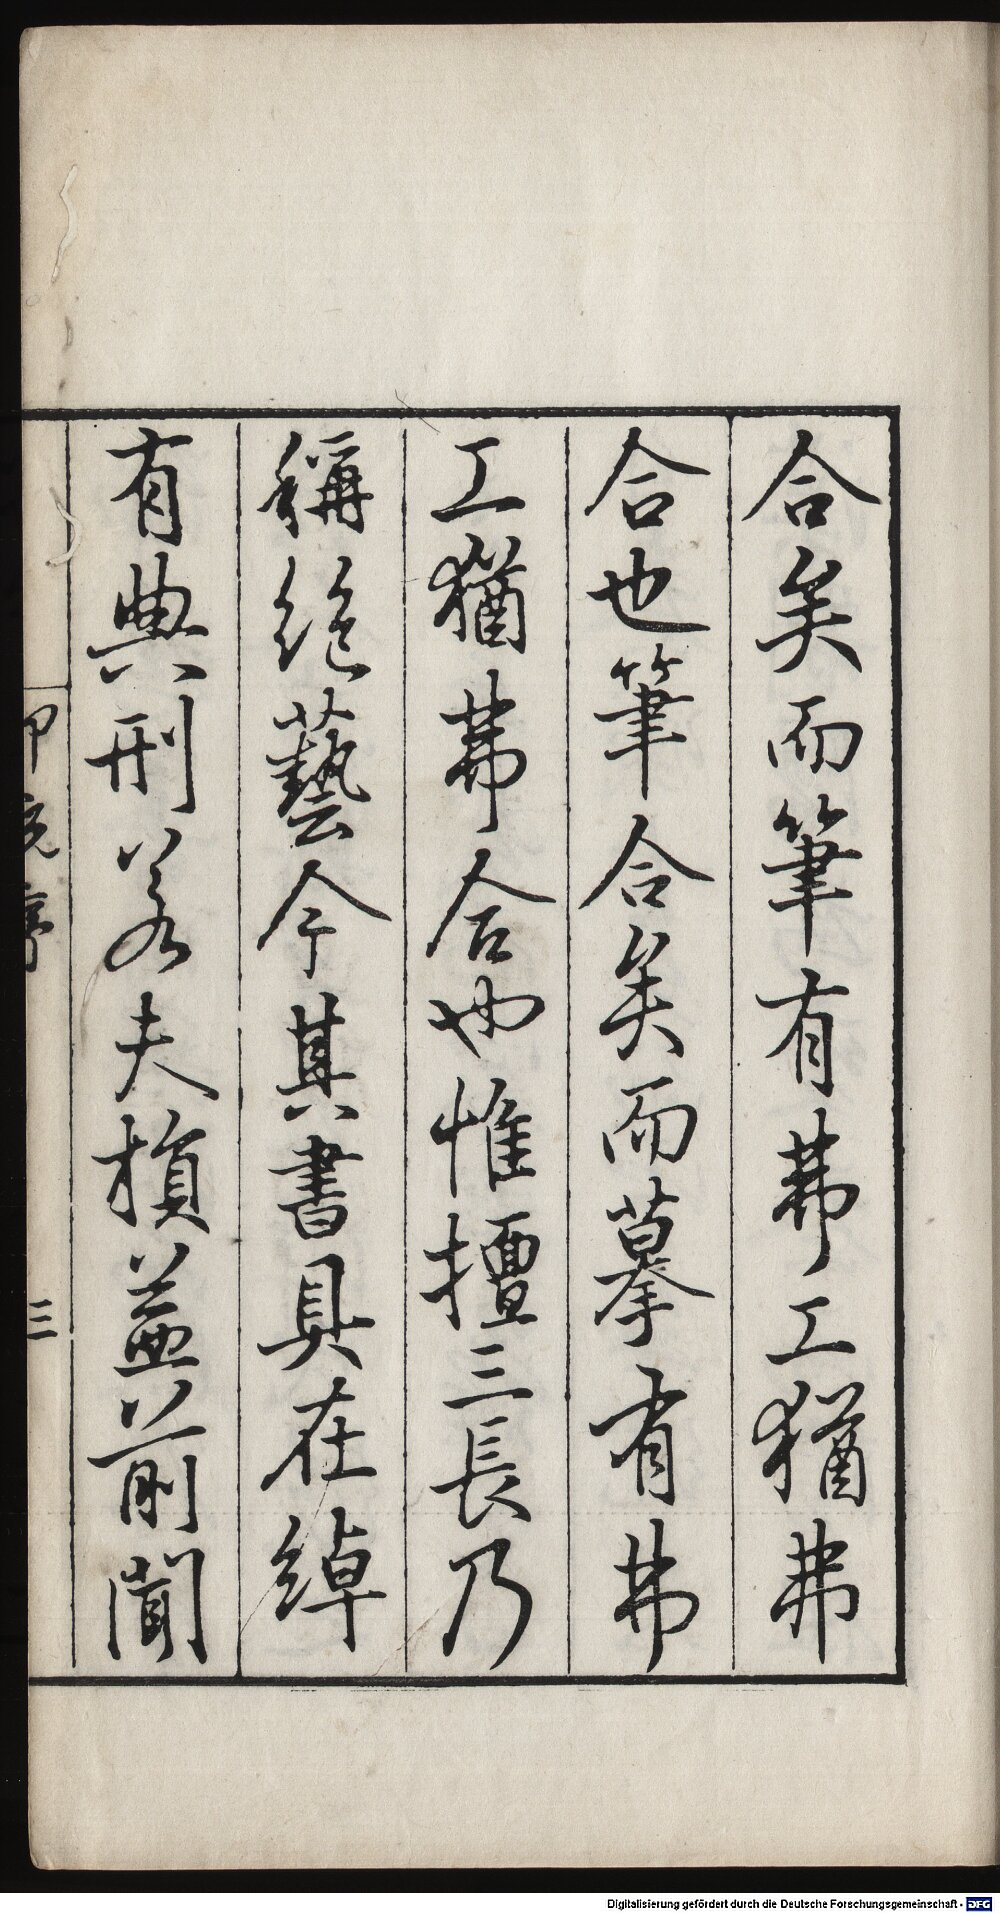 合矣而筆有弗工猶弗
合也筆合矣而摹有弗
工猶弗合也惟擅三長乃
稱絕藝今其書具在綽
有典刑若夫損益前聞
印究序
三
Digitalisierung gefördert durch die Deutsche Forschungsgemeinschaft - DFG